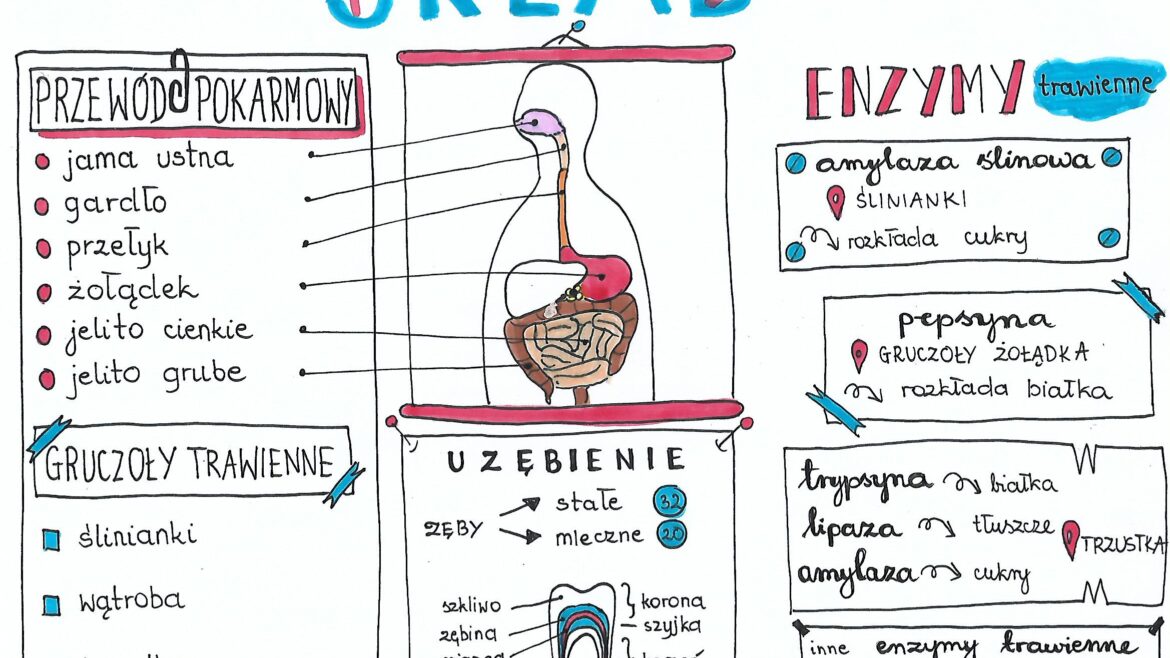 PRZEWÓD POKARMOWY
jama ustna
gardło
przełyk
żołądek
jelito cienkie
jelito grube
GRUCZOŁY TRAWIENNE
ślinianki
wątroba
UZĘBIENIE
ZĘBY
stałe 32
mleczne 20
szkliwo
zębina
korona
szyjka
ENZYMY trawienne
amylaza ślinowa
ŚLINIANKI
rozkłada cukry
pepsyna
GRUCZOŁY ŻOŁĄDKA
rozkłada białka
trypsyna białka
lipaza tłuszcze
TRZUSTKA
amylaza cukry
inne enzymy trawienne